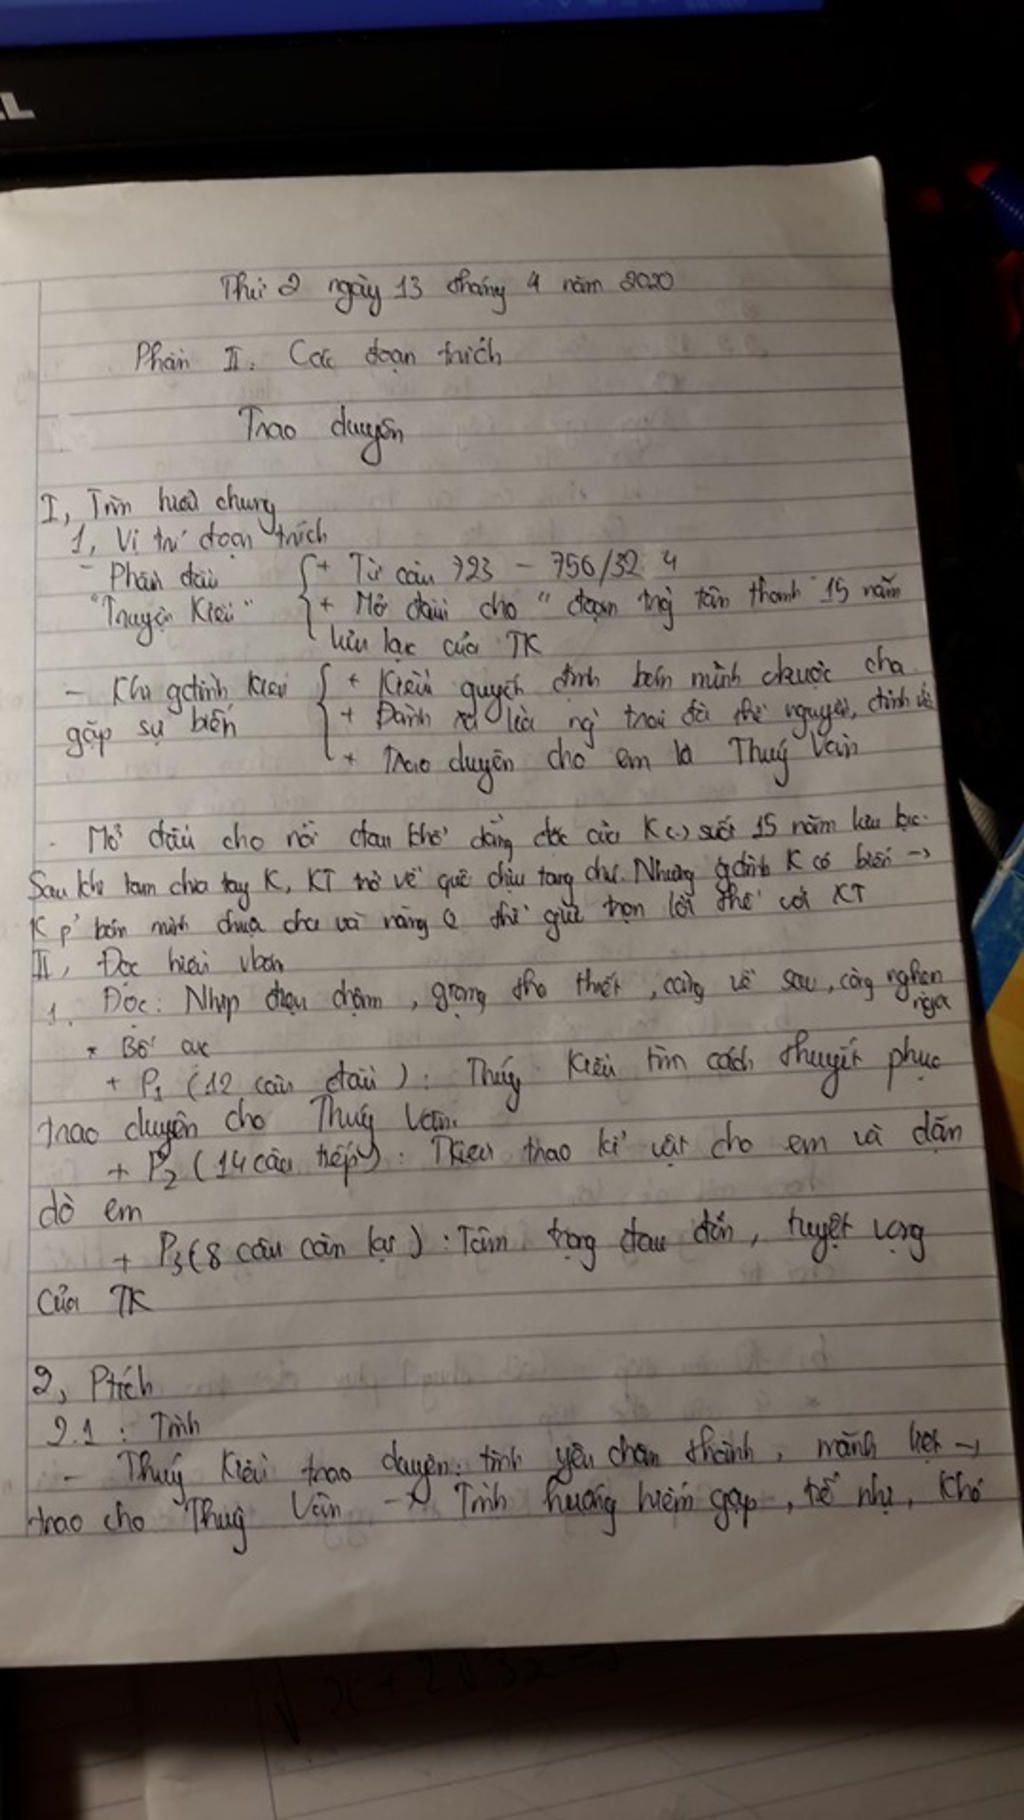 Thứ 2 ngày 13 tháng 4 năm 2020
Phần II. Các đoạn trích
Trao duyên
I, Tìm hiểu chung
1, Vị trí đoạn trích
- Phần đầu "Truyện Kiều"
+ Từ câu 723 - 756/32 4
+ Mở đầu cho "đoạn trg tân thanh" 15 năm
lưu lạc của TK
- Khi gđình Kiều gặp sự biến
+ Kiều quyết định bán mình chuộc cha
+ Đành lời ng trai đã thề nguyền, đính
+ Trao duyên cho em là Thuý Vân
- Mở đầu cho nỗi đau khổ dằng dặc của K (-) suốt 15 năm lưu lạc.
Sau khi chia tay K, KT trở về quê chịu tang chú. Nhưng gđình K có biến →
K p' bán mình chuộc cha và nàng 0 thể giữ trọn lời thề với KT
II, Đọc hiểu vbản
1. Đọc: Nhịp chậm, giọng tha thiết, càng về sau, càng nghẹn
ngào
* Bố cục
+ P1 (12 câu đầu): Thúy Kiều tìm cách thuyết phục
trao duyên cho Thuý Vân.
+ P2 (14 câu tiếp): TKiều trao kỉ vật cho em và dặn
dò em
+ P3 (8 câu còn lại): Tâm trạng đau đớn, tuyệt vọng
của TK
2, Ptích
2.1: Tình
- Thuý Kiều trao duyên: tình yêu chân thành, mãnh liệt →
trao cho Thuý Vân → Tình huống hiếm gặp, tế nhị, khó